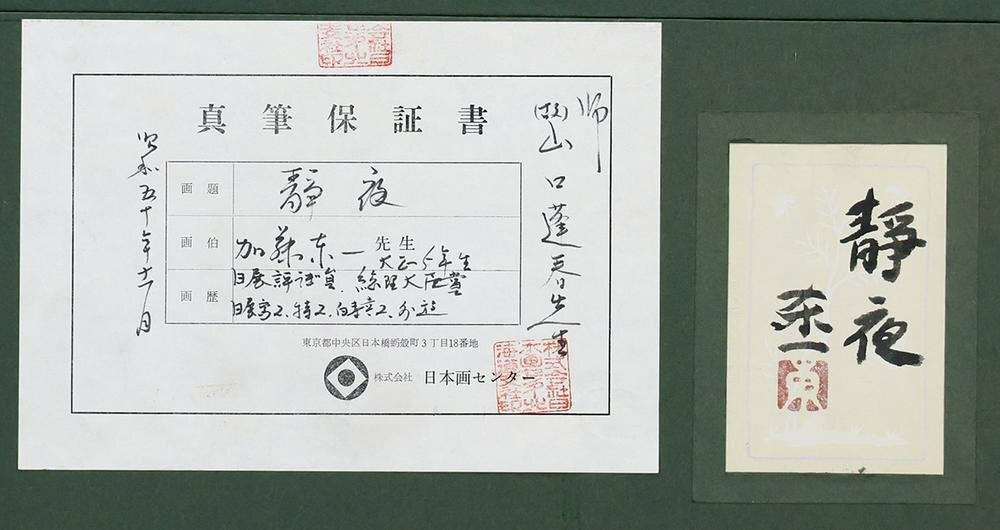 真筆保証書
師
山口蓬春先生
画題 靜夜
画伯 加藤東一 先生
大正5年生
画歴 日展評議員、総理大臣賞
日展審2、特2、白寿賞2、外遊
昭和五十年十一月
東京都中央区日本橋蛎殻町3丁目18番地
株式会社 日本画センター
靜夜
東一
東